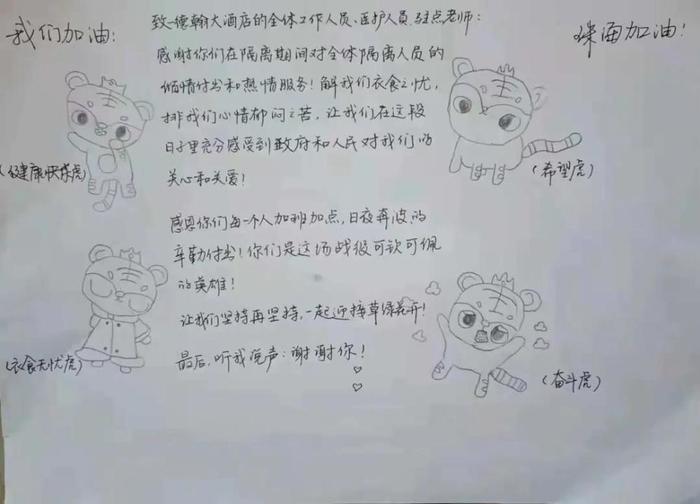 我们加油：
珠海加油！
致德翰大酒店的全体工作人员、医护人员、驻点老师：
感谢你们在隔离期间对全体隔离人员的
倾情付出和热情服务！解我们衣食之忧，
排我们心情郁闷之苦，让我们在这段
日子里充分感受到政府和人民对我们的
关心和关爱！
感恩你们每一个人加班加点，日夜奔波的
辛勤付出！你们是这场战役可钦可佩
的英雄！
让我们坚持再坚持，一起迎接草绿花开！
最后，听我说声：谢谢你！
（健康快乐虎）
（希望虎）
（衣食无忧虎）
（奋斗虎）